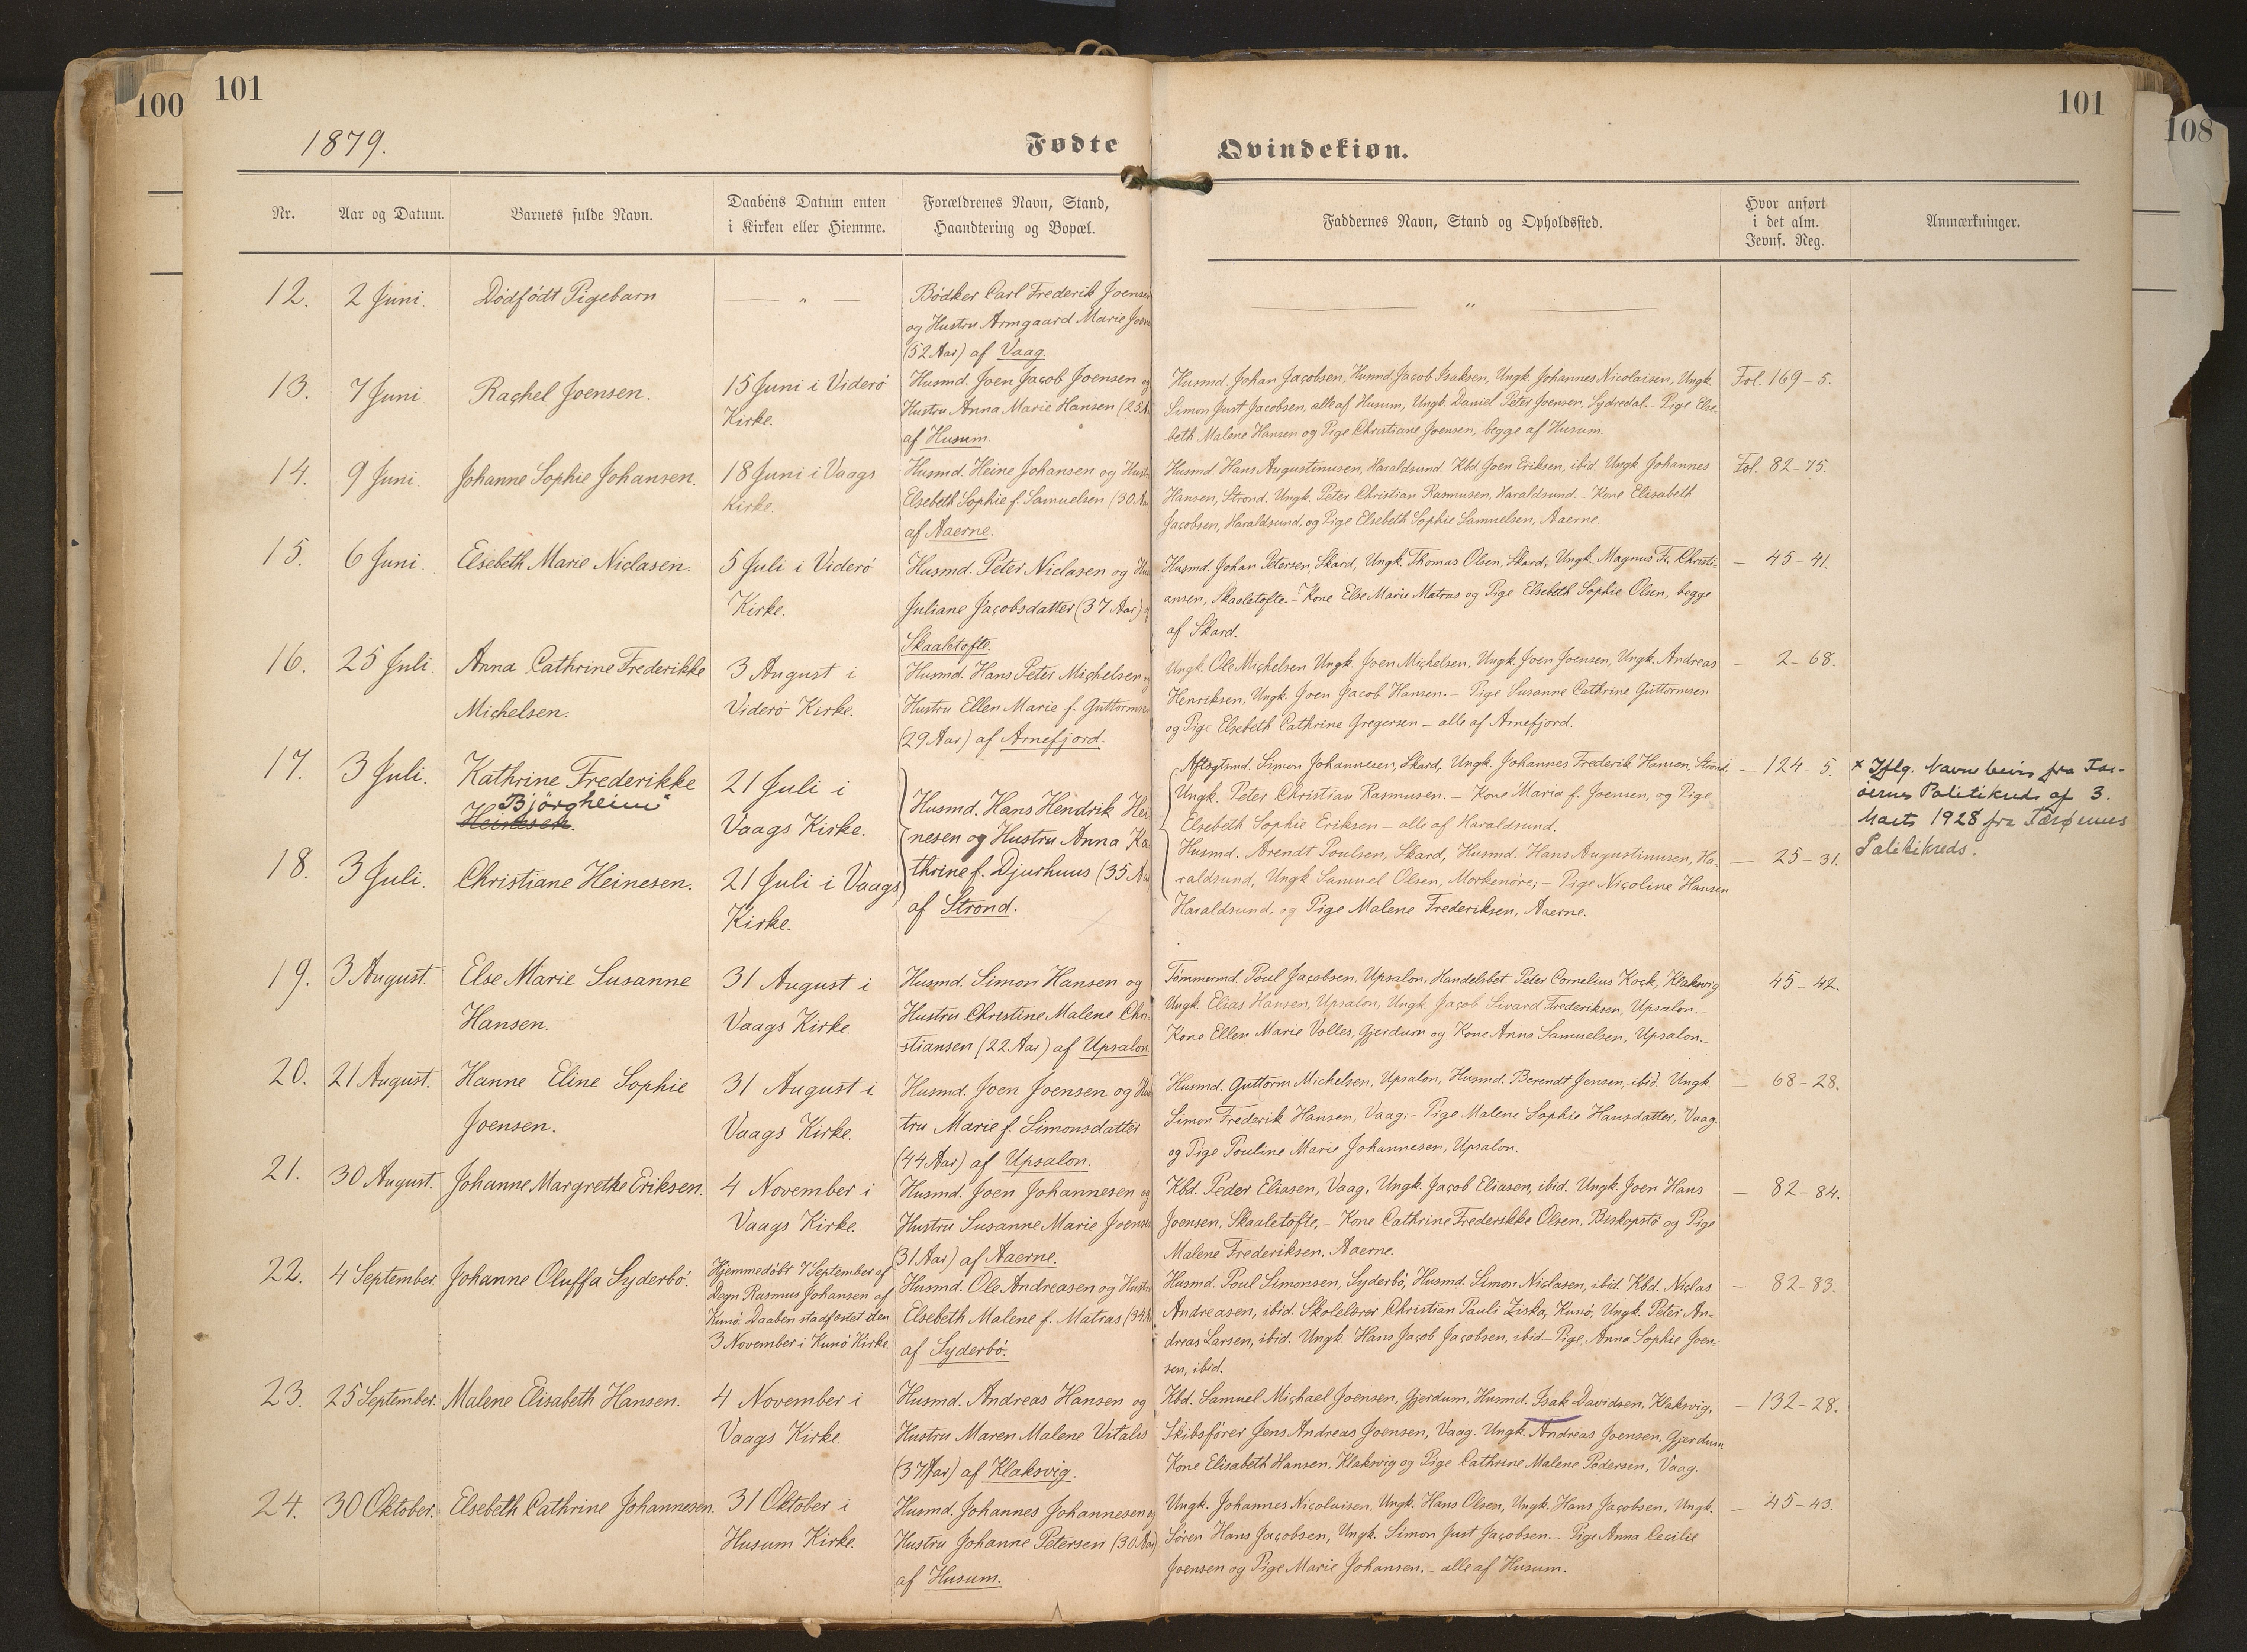 100
101
1879.
Fødte
Qvindekiøn.
101
108
Nr.
Aar og Datum.
Barnets fulde Navn.
Daabens Datum enten
i Kirken eller Hiemme.
Forældrenes Navn, Stand,
Haandtering og Bopæl.
Faddernes Navn, Stand og Opholdssted.
Hvor anført
i det alm.
Jevnf. Reg.
Anmærkninger.
12.
2 Juni.
Dødfødt Pigebarn
— „ —
Bødker Carl Frederik Joensen
og Hustru Armgaard Marie Joen
(52 Aar) af Vaag.
— „ —
13.
7 Juni
Rachel Joensen.
15 Juni i Viderö
Kirke.
Husmd. Joen Jacob Joensen og
Hustru Anna Marie Hansen (25 A
af Husum.
Husmd. Johan Jacobsen, Husmd. Jacob Isaksen, Ungk. Johannes Nicolaisen, Ungk.
Simon Just Jacobsen, alle af Husum, Ungk. Daniel Peter Joensen, Sydredal. – Pige Else-
beth Malene Hansen og Pige Christiane Joensen, begge af Husum.
Fol. 169 – 5.
14.
9 Juni.
Johanne Sophie Johansen.
18 Juni i Vaags
Kirke.
Husmd. Heine Johansen og Hustru
Elsebeth Sophie f. Samuelsen (30 Aar
af Aaerne.
Husmd. Hans Augustinusen, Haraldsund. Kbd. Joen Eriksen, ibid. Ungk. Johannes
Hansen, Strond. Ungk. Peter Christian Rasmusen, Haraldsund. – Kone Elisabeth
Jacobsen, Haraldsund, og Pige Elsebeth Sophie Samuelsen, Aaerne.
Fol. 82 – 75.
15.
6 Juni.
Elsebeth Marie Niclasen.
5 Juli i Viderö
Kirke.
Husmd. Peter Niclasen og Hus
Juliane Jacobsdatter (37 Aar) af
Skaaletofte.
Husmd. Johan Petersen, Skard, Ungk. Thomas Olsen, Skard, Ungk. Magnus Fr. Christi-
ansen, Skaaletofte. – Kone Else Marie Matras og Pige Elsebeth Sophie Olsen, begge
af Skard.
— 45 – 41.
16.
25 Juli.
Anna Cathrine Frederikke
Michelsen.
3 August i
Viderö Kirke.
Husmd. Hans Peter Michelsen og
Hustru Ellen Marie f. Guttormsen
(29 Aar) af Arnefjord.
Ungk. Ole Michelsen Ungk. Joen Michelsen, Ungk. Joen Joensen, Ungk. Andreas
Henriksen, Ungk. Joen Jacob Hansen. – Pige Susanne Cathrine Guttormsen
og Pige Elsebeth Cathrine Gregersen – alle af Arnefjord.
— 2 – 68.
17.
3 Juli.
Kathrine Frederikke
Bjørgheim
Heinesen.
21 Juli i
Vaags Kirke.
Husmd. Hans Hendrik Hei
nesen og Hustru Anna Ka
thrine f. Djurhuus (35 Aar
af Strond.
Aftægtsmd. Simon Johannesen, Skard, Ungk. Johannes Frederik Hansen, Strond,
Ungk. Peter Christian Rasmusen. – Kone Maria f. Joensen, og Pige
Elsebeth Sophie Eriksen – alle af Haraldsund.
— 124 – 5.
x Iflg. Navnebevis fra Fær-
øernes Politikreds af 3.
Marts 1928 fra Færøernes
Politikreds.
18.
3 Juli.
Christiane Heinesen.
21 Juli i Vaags
Kirke.
Husmd. Arendt Poulsen, Skard, Husmd. Hans Augustinusen, Ha-
raldsund, Ungk. Samuel Olsen, Morkenøre; – Pige Nicoline Hansen
Haraldsund, og Pige Malene Frederiksen, Aaerne.
— 25 – 31.
19.
3 August.
Else Marie Susanne
Hansen.
31 August i
Vaags Kirke.
Husmd. Simon Hansen og
Hustru Christine Malene Chri-
stiansen (22 Aar) af Upsalon
Tømmermd. Poul Jacobsen, Upsalon, Handelsbet. Peter Cornelius Kock, Klaksvig
Ungk. Elias Hansen, Upsalon, Ungk. Jacob Sivard Frederiksen, Upsalon. –
Kone Ellen Marie Volles, Gjerdum og Kone Anna Samuelsen, Upsalon. –
— 45 – 42.
20.
21 August.
Hanne Eline Sophie
Joensen.
31 August i
Vaags Kirke.
Husmd. Joen Joensen og Hus
tru Marie f. Simonsdatter
(44 Aar) af Upsalon.
Husmd. Guttorm Michelsen, Upsalon, Husmd. Berendt Jensen, ibid. Ungk.
Simon Frederik Hansen, Vaag; – Pige Malene Sophie Hansdatter, Vaag.
og Pige Pouline Marie Johannesen, Upsalon.
— 68 – 28.
21.
30 August.
Johanne Margrethe Eriksen.
4 November i
Vaags Kirke.
Husmd. Joen Johannesen og
Hustru Susanne Marie Joensen
(31 Aar) af Aaerne.
Kbd. Peder Eliasen, Vaag, Ungk. Jacob Eliasen, ibid. Ungk. Joen Hans
Joensen, Skaaletofte, – Kone Cathrine Frederikke Olsen, Biskopstö og Pige
Malene Frederiksen, Aaerne.
— 82 – 84.
22.
4 September.
Johanne Oluffa Syderbö.
Hjemmedöbt 7 September af
Degn Rasmus Johansen af
Kunö. Daaben stadfæstet den
3 November i Kunö Kirke.
Husmd. Ole Andreasen og Hustru
Elsebeth Malene f. Matras (34 A
af Syderbö.
Husmd. Poul Simonsen, Syderbö, Husmd. Simon Niclasen, ibid. Kbd. Niclas
Andreasen, ibid. Skolelærer Christian Pauli Ziska, Kunö, Ungk. Peter An-
dreas Larsen, ibid. Ungk. Hans Jacob Jacobsen, ibid. – Pige Anna Sophie Joen-
sen, ibid.
— 82 – 83.
23.
25 September.
Malene Elisabeth Hansen.
4 November i
Vaags Kirke.
Husmd. Andreas Hansen og
Hustru Maren Malene Vitalis
(37 Aar) af Klaksvig.
Kbd. Samuel Michael Joensen, Gjerdum, Husmd. Isak Davidsen, Klaksvig,
Skibsfører Jens Andreas Joensen, Vaag. Ungk. Andreas Joensen, Gjerdum
Kone Elisabeth Hansen, Klaksvig og Pige Cathrine Malene Pedersen, Vaag.
— 132 – 28.
24.
30 Oktober.
Elsebeth Cathrine Johannesen.
31 Oktober i
Husum Kirke.
Husmd. Johannes Johannesen og
Hustru Johanne Petersen (30 Aar)
af Husum.
Ungk. Johannes Nicolaisen, Ungk. Hans Olsen, Ungk. Hans Jacobsen, Ungk.
Søren Hans Jacobsen, Ungk. Simon Just Jacobsen. – Pige Anna Cecilie
Joensen og Pige Marie Johansen. – alle af Husum.
— 45 – 43.